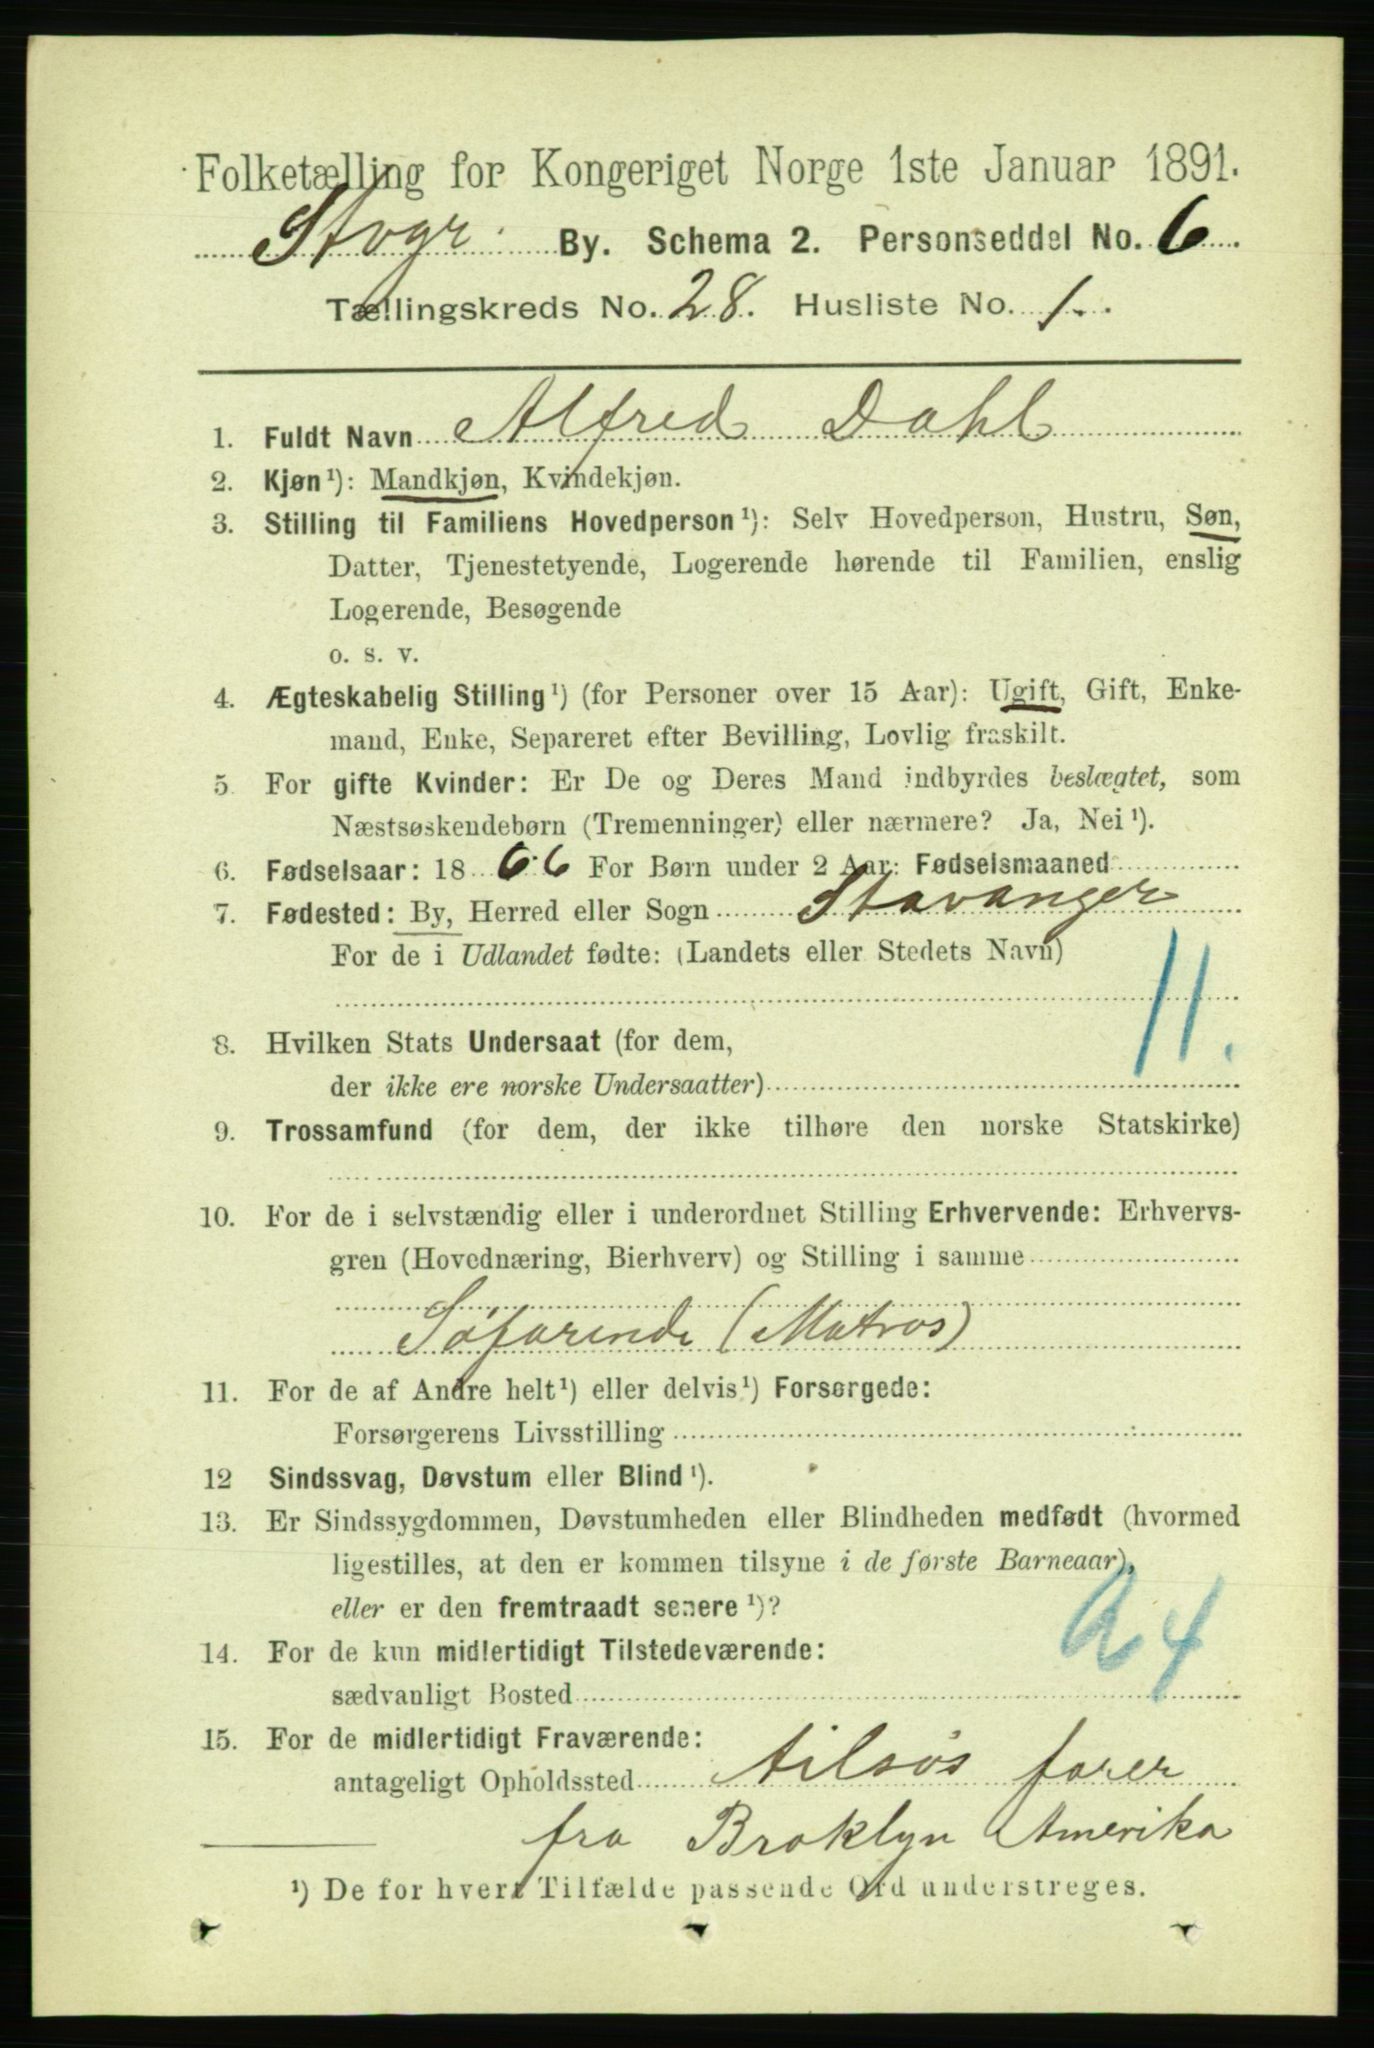 Folketælling for Kongeriget Norge 1ste Januar 1891.
Stvgr By. Schema 2. Personseddel No. 6
Tællingskreds No. 28. Husliste No. 1.
1. Fuldt Navn Alfred Dahl
2. Kjøn¹): Mandkjøn, Kvindekjøn.
3. Stilling til Familiens Hovedperson¹): Selv Hovedperson, Hustru, Søn,
Datter, Tjenestetyende, Logerende hørende til Familien, enslig
Logerende, Besøgende
o. s. v.
4. Ægteskabelig Stilling¹) (for Personer over 15 Aar): Ugift, Gift, Enke-
mand, Enke, Separeret efter Bevilling, Lovlig fraskilt.
5 For gifte Kvinder: Er De og Deres Mand indbyrdes beslægtet, som
Næstsøskendebørn (Tremenninger) eller nærmere? Ja, Nei¹).
6. Fødselsaar: 1866 For Børn under 2 Aar: Fødselsmaaned
7. Fødested: By, Herred eller Sogn Stavanger
For de i Udlandet fødte: (Landets eller Stedets Navn)
11.
8. Hvilken Stats Undersaat (for dem,
der ikke ere norske Undersaatter)
9. Trossamfund (for dem, der ikke tilhøre den norske Statskirke)
10. For de i selvstændig eller i underordnet Stilling Erhvervende: Erhvervs-
gren (Hovednæring, Bierhverv) og Stilling i samme
Søfarende (Matros)
11. For de af Andre helt¹) eller delvis¹) Forsørgede:
Forsørgerens Livsstilling
12 Sindssvag, Døvstum eller Blind¹).
13. Er Sindssygdommen, Døvstumheden eller Blindheden medfødt (hvormed
ligestilles, at den er kommen tilsyne i de første Barneaar),
eller er den fremtraadt senere¹)?
A 4
14. For de kun midlertidigt Tilstedeværende:
sædvanligt Bosted
15. For de midlertidigt Fraværende:
antageligt Opholdssted tilsøs farer
fra Broklyn Amerika
¹) De for hvert Tilfælde passende Ord understreges.